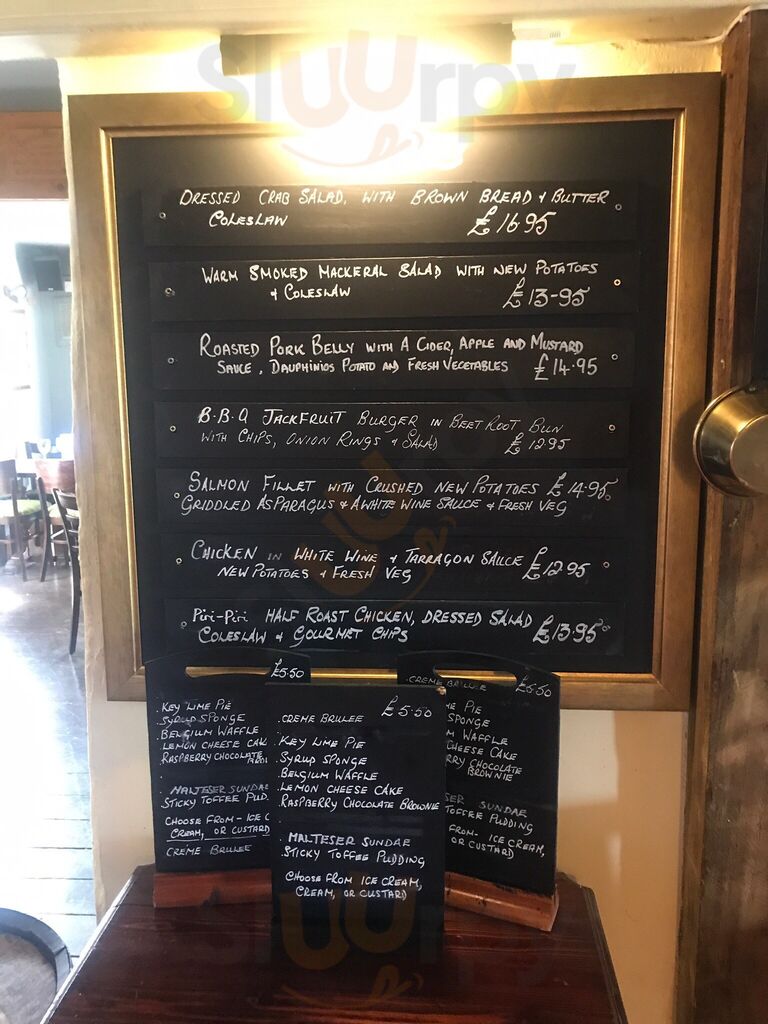 Sluurpy
DRESSED CRAB SALAD, WITH BROWN BREAD & BUTTER
COLESLAW £16.95
WARM SMOKED MACKERAL SALAD WITH NEW POTATOES
& COLESLAW £13-95
ROASTED PORK BELLY WITH A CIDER, APPLE AND MUSTARD
SAUCE, DAUPHINIOS POTATO AND FRESH VEGETABLES £14.95
B.B.Q JACKFRUIT BURGER IN BEETROOT BUN
WITH CHIPS, ONION RINGS & SALAD £12.95
SALMON FILLET WITH CRUSHED NEW POTATOES £14.95
GRIDDLED ASPARAGUS & A WHITE WINE SAUCE & FRESH VEG
CHICKEN IN WHITE WINE & TARRAGON SAUCE £12.95
NEW POTATOES & FRESH VEG
Piri-Piri HALF ROAST CHICKEN, DRESSED SALAD
COLESLAW & GOURMET CHIPS £13.95
£5.50
.KEY LIME PIE
.SYRUP SPONGE
.BELGIUM WAFFLE
.LEMON CHEESE CAK
RASPBERRY CHOCOLATE
.MALTESER SUNDAE
STICKY TOFFEE PUD.
CHOOSE FROM - ICE C
CREAM, OR CUSTARD
CREME BRULEE
£5.50
.CREME BRULEE
.KEY LIME PIE
.SYRUP SPONGE
.BELGIUM WAFFLE
.LEMON CHEESE CAKE
.RASPBERRY CHOCOLATE BROWNIE
.MALTESER SUNDAE
.STICKY TOFFEE PUDDING
CHOOSE FROM ICE CREAM,
CREAM, OR CUSTARD
.CREME BRULEE £5.50
ME PIE
SPONGE
M WAFFLE
CHEESE CAKE
RRY CHOCOLATE
BROWNIE
SER SUNDAE
TOFFEE PUDDING
FROM- ICE CREAM,
OR CUSTARD)